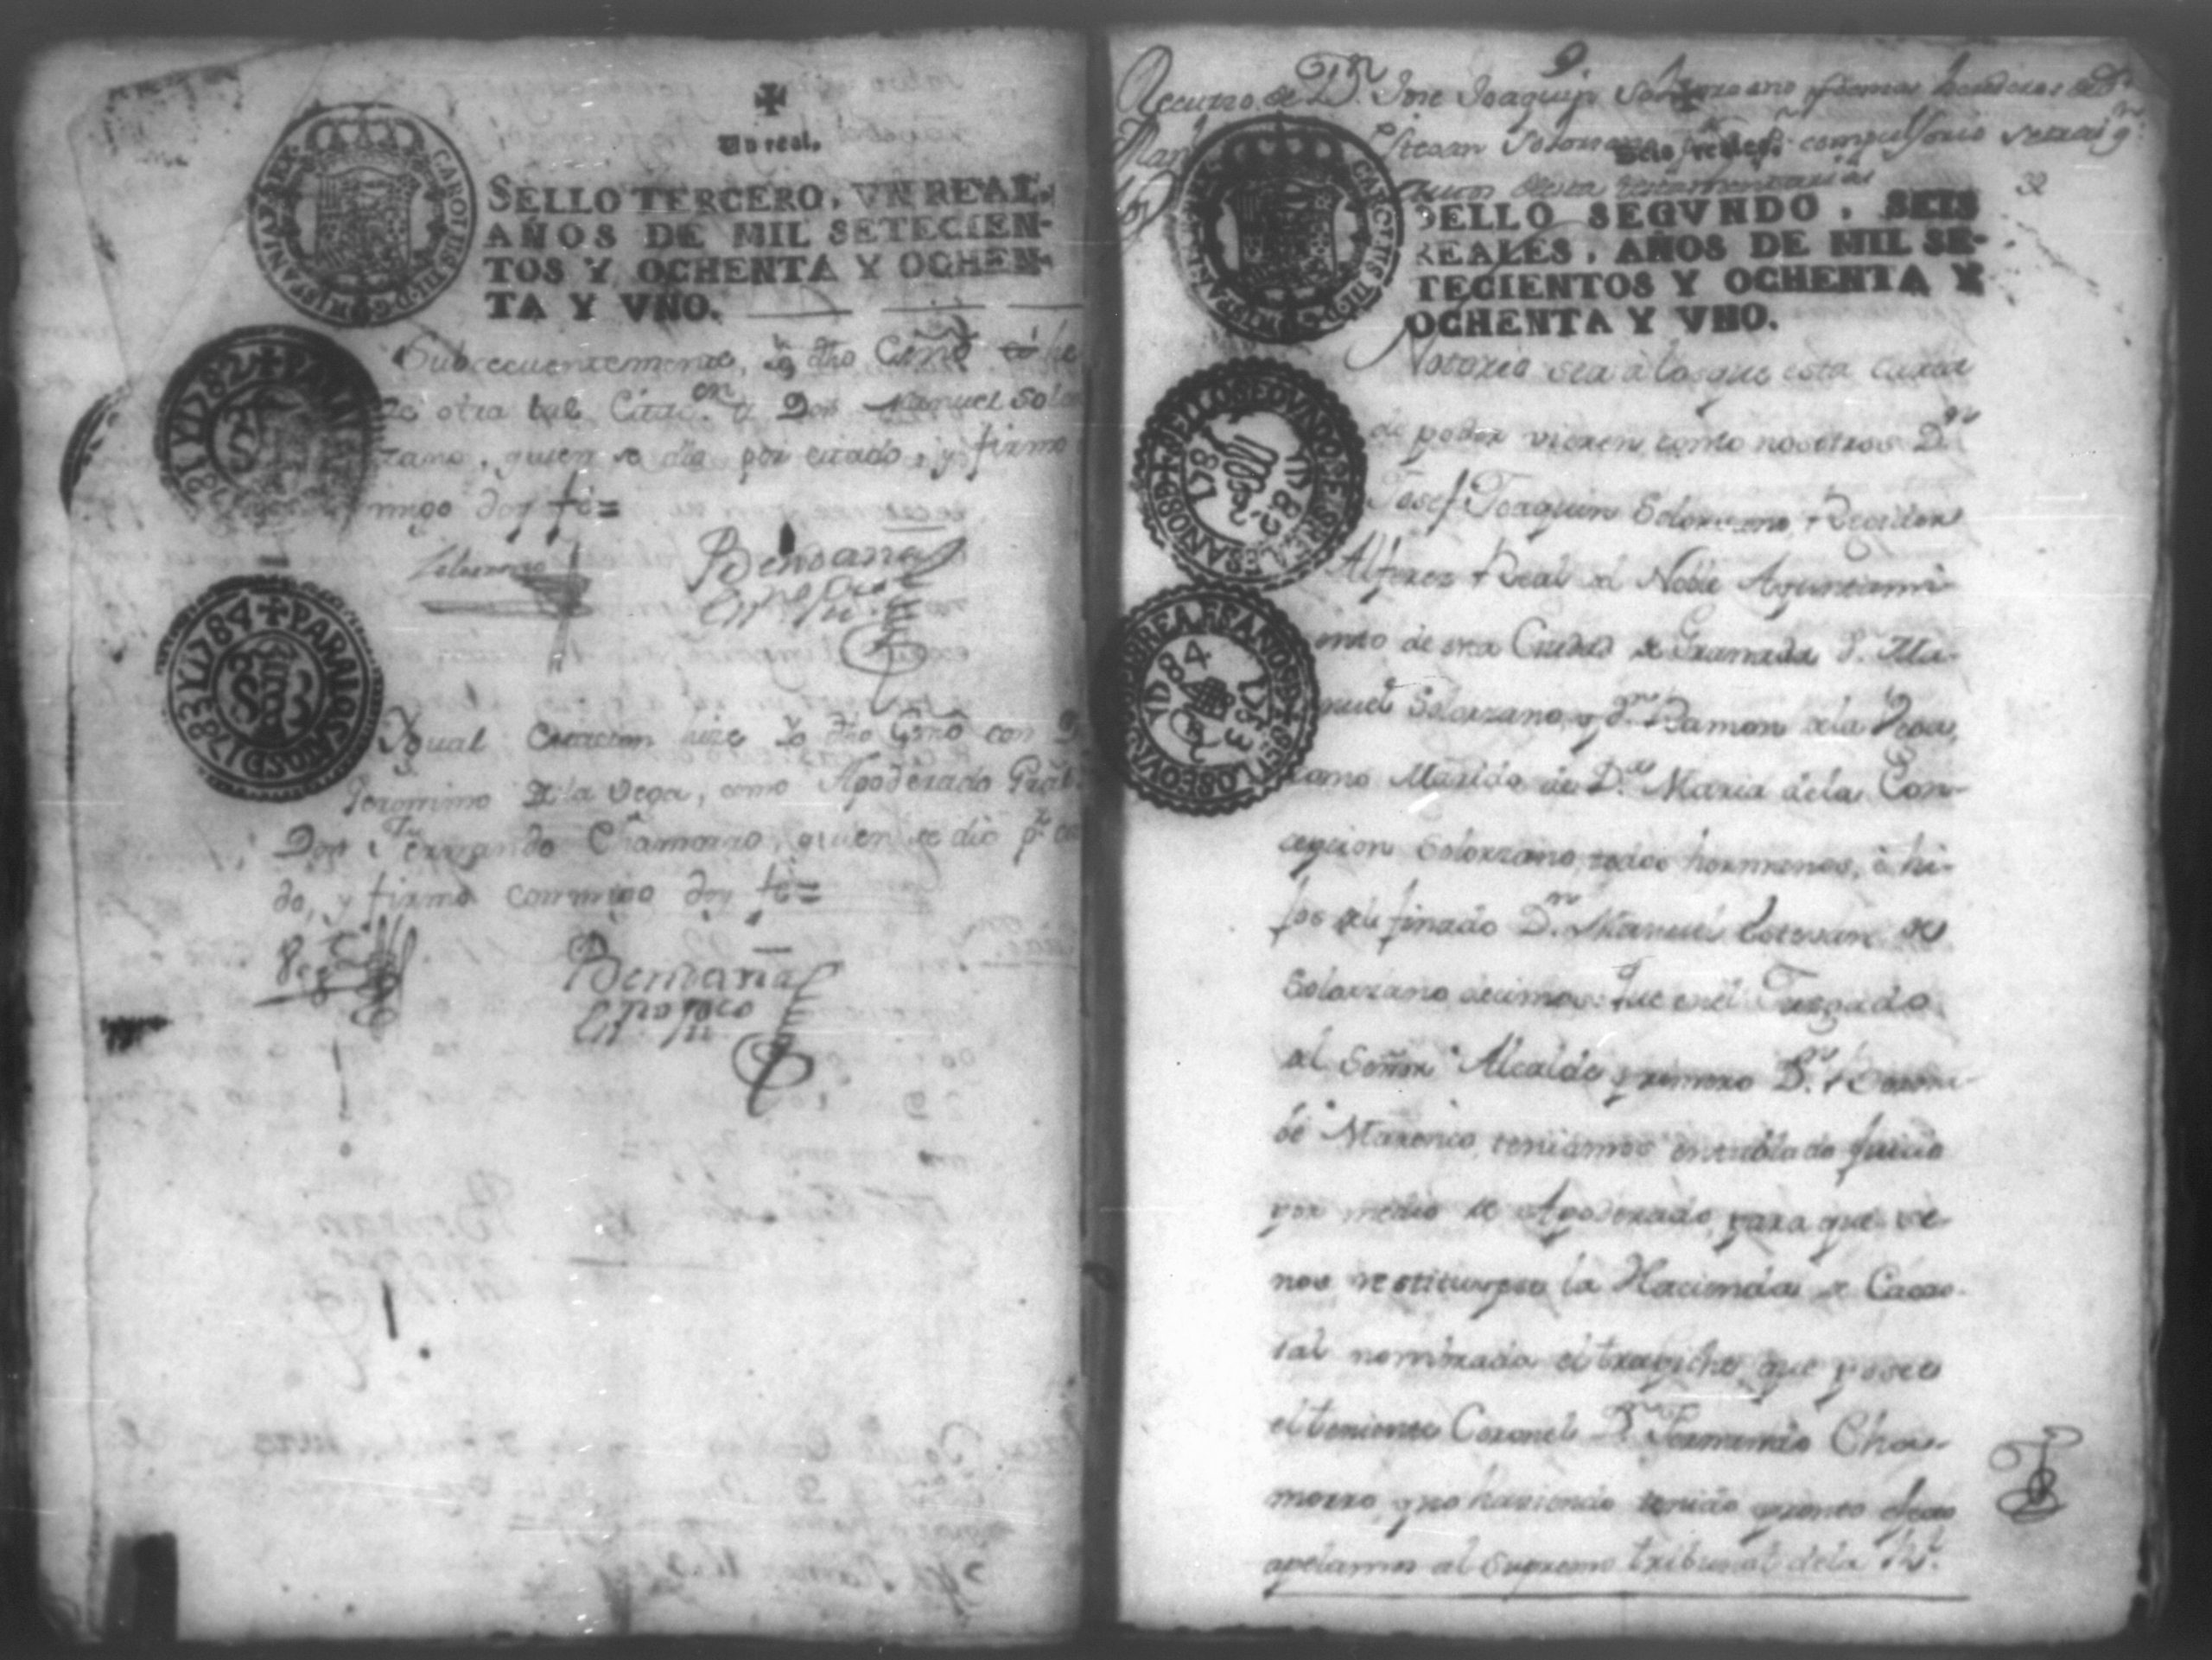 Un real.
SELLO TERCERO, VN REAL,
AÑOS DE MIL SETECIEN-
TOS Y OCHENTA Y OCHEN-
TA Y VNO.
CAROLUS III D G HISPANIAR REX
Subsecuentemente, Yo dho Essno
otra tal Citacn a Don Manuel Solor
zano, quien se dio por citado, y firmo
migo doy fe =
1781 Y 1782 + PARA
Solorzano
Bendaña
1783 Y 1784 + PARA LOS ANOS D
Ygual citacion hize Yo dho Essno con Dn
Geronimo de la Vega, como Apoderado Gral
Don Fernando Chamorro, quien se dio pr cita
do, y firmo conmigo doy fe =
Vega
Bendaña
9
Recurso de Dn Jose Joaquin Solorzano y demas herederos de Dn
Manl Estevan Solorzano
Seis reales.
32
SELLO SEGVNDO, SEIS
REALES, AÑOS DE MIL SE-
TECIENTOS Y OCHENTA Y
OCHENTA Y VNO.
Notorio sea a los que esta carta
de poder vieren como nosotros Dn
Josef Joaquin Solorzano, Regidor
Alferez Real del Noble Ayuntami-
ento de esta Ciudad de Granada Dn Ma-
nuel Solorzano, y Dn Ramon de la Vega,
como Marido de Da Maria de la Con-
cepcion Solorzano, todos hermanos, è hi-
jos del finado Dn Manuel Estevan de
Solorzano decimos: que en el Juzgado
del Señor Alcalde primero Dn
Marenco, teniamos entablado juicio
por medio de Apoderado, para que se
nos restituyese la Hacienda de Cacao-
tal nombrada el trapiche, que posee
el teniente Coronel Dn Fernando Cha-
morro, y no haviendo tenido pronto efecto
apelamos al Supremo tribunal de la Rl